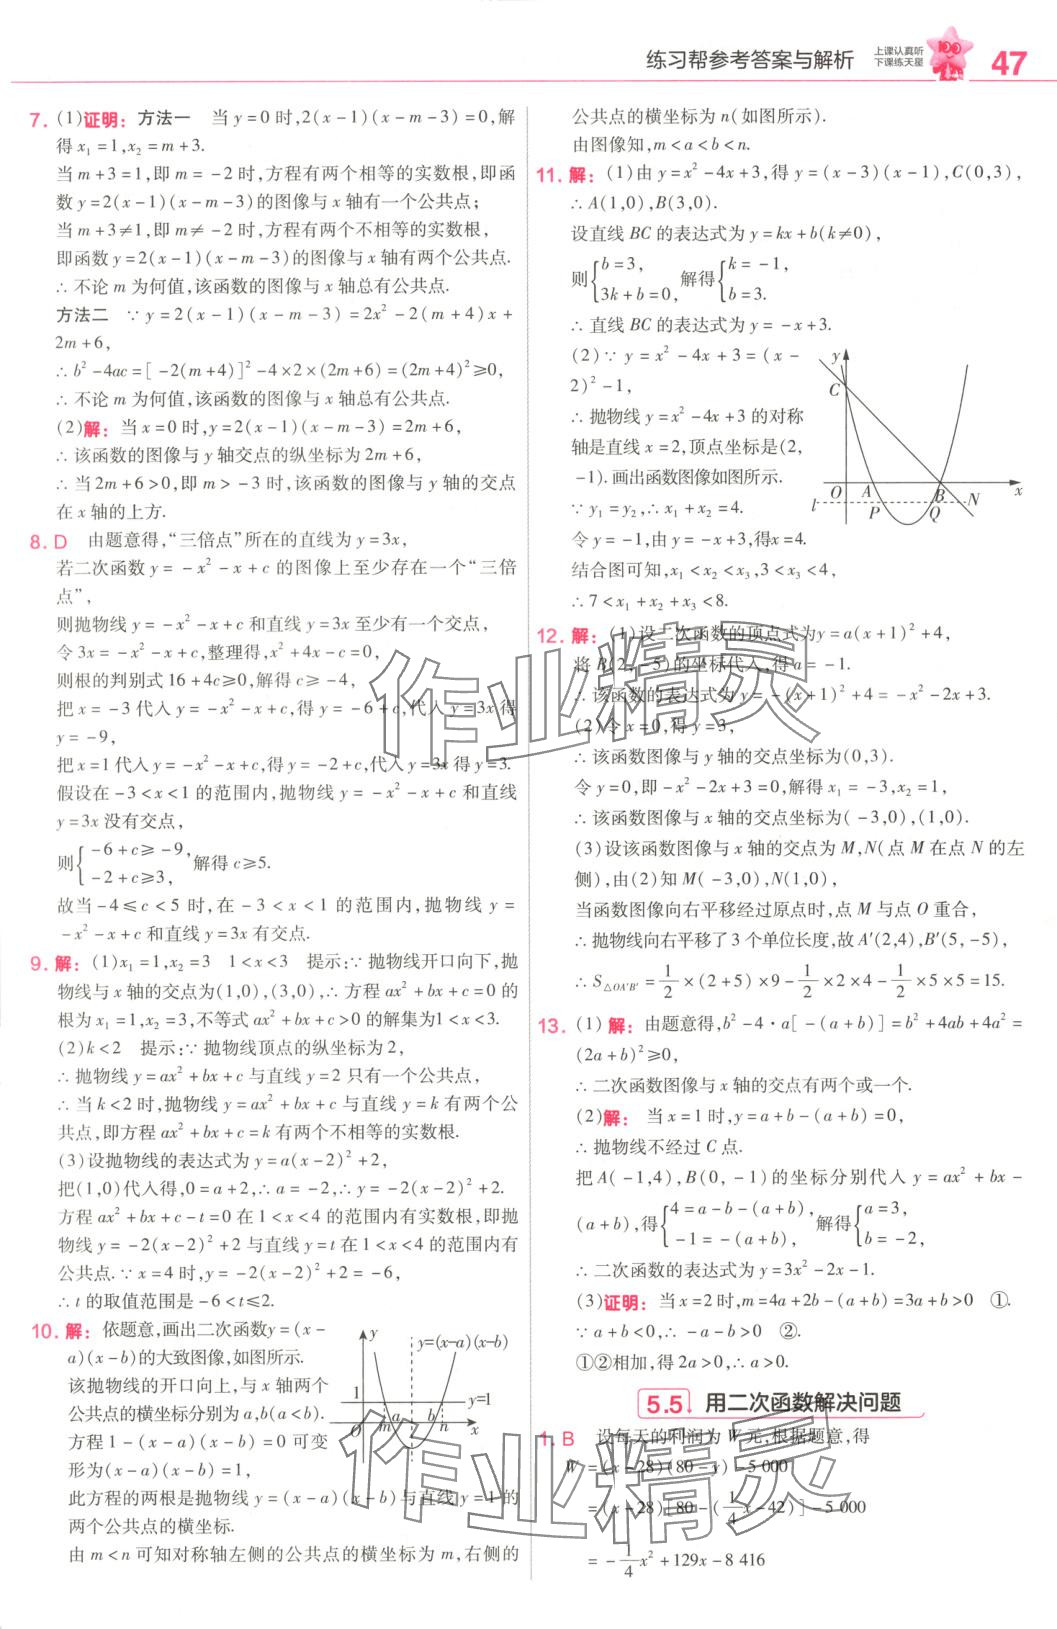 练习帮参考答案与解析
上课认真听
下课练天星
47
7. (1)证明：方法一　当 y=0 时,2(x-1)(x-m-3)=0,解
得 x₁=1,x₂=m+3.
当 m+3=1,即 m=-2时,方程有两个相等的实数根,即函
数 y=2(x-1)(x-m-3)的图像与 x 轴有一个公共点;
当 m+3≠1,即 m≠-2时,方程有两个不相等的实数根,
即函数 y=2(x-1)(x-m-3)的图像与 x 轴有两个公共点.
∴ 不论 m 为何值,该函数的图像与 x 轴总有公共点.
方法二　∵ y=2(x-1)(x-m-3)=2x²-2(m+4)x+
2m+6,
∴ b²-4ac=[-2(m+4)]²-4×2×(2m+6)=(2m+4)²≥0,
∴ 不论 m 为何值,该函数的图像与 x 轴总有公共点.
(2)解：当 x=0 时,y=2(x-1)(x-m-3)=2m+6,
∴ 该函数的图像与 y 轴交点的纵坐标为 2m+6,
∴ 当 2m+6>0,即 m>-3 时,该函数的图像与 y 轴的交点
在 x 轴的上方.
8. D　由题意得,“三倍点”所在的直线为 y=3x,
若二次函数 y=-x²-x+c 的图像上至少存在一个“三倍
点”,
则抛物线 y=-x²-x+c 和直线 y=3x 至少有一个交点,
令 3x=-x²-x+c,整理得,x²+4x-c=0,
则根的判别式 16+4c≥0,解得 c≥-4,
把 x=-3 代入 y=-x²-x+c,得 y=-6+c,代入 y=3x 得
y=-9,
把 x=1 代入 y=-x²-x+c,得 y=-2+c,代入 y=3x 得 y=3.
假设在-3<x<1 的范围内,抛物线 y=-x²-x+c 和直线
y=3x 没有交点,
则{-6+c≥-9, -2+c≥3, 解得 c≥5.
故当-4≤c<5 时,在-3<x<1 的范围内,抛物线 y=
-x²-x+c 和直线 y=3x 有交点.
9. 解：(1)x₁=1,x₂=3　1<x<3　提示：∵ 抛物线开口向下,抛
物线与 x 轴的交点为(1,0),(3,0),∴ 方程 ax²+bx+c=0 的
根为 x₁=1,x₂=3,不等式 ax²+bx+c>0 的解集为 1<x<3.
(2)k<2　提示：∵ 抛物线顶点的纵坐标为 2,
∴ 抛物线 y=ax²+bx+c 与直线 y=2 只有一个公共点,
∴ 当 k<2 时,抛物线 y=ax²+bx+c 与直线 y=k 有两个公
共点,即方程 ax²+bx+c=k 有两个不相等的实数根.
(3)设抛物线的表达式为 y=a(x-2)²+2,
把(1,0)代入得,0=a+2,∴ a=-2,∴ y=-2(x-2)²+2.
方程 ax²+bx+c-t=0 在 1<x<4 的范围内有实数根,即抛
物线 y=-2(x-2)²+2 与直线 y=t 在 1<x<4 的范围内有
公共点.∵ x=4 时,y=-2(x-2)²+2=-6,
∴ t 的取值范围是-6<t≤2.
10. 解：依题意,画出二次函数 y=(x-
a)(x-b)的大致图像,如图所示.
该抛物线的开口向上,与 x 轴两个
公共点的横坐标分别为 a,b(a<b).
方程 1-(x-a)(x-b)=0 可变
形为(x-a)(x-b)=1,
此方程的两根是抛物线 y=(x-a)(x-b)与直线 y=1 的
两个公共点的横坐标.
由 m<n 可知对称轴左侧的公共点的横坐标为 m,右侧的
y
y=(x-a)(x-b)
1
y=1
O m a b n x
公共点的横坐标为 n(如图所示).
由图像知,m<a<b<n.
11. 解：(1)由 y=x²-4x+3,得 y=(x-3)(x-1),C(0,3),
∴ A(1,0),B(3,0).
设直线 BC 的表达式为 y=kx+b(k≠0),
则{b=3, 3k+b=0, 解得{k=-1, b=3.
∴ 直线 BC 的表达式为 y=-x+3.
(2)∵ y=x²-4x+3=(x-
2)²-1,
∴ 抛物线 y=x²-4x+3 的对称
轴是直线 x=2,顶点坐标是(2,
-1).画出函数图像如图所示.
∵ y₁=y₂,∴ x₁+x₂=4.
令 y=-1,由 y=-x+3,得x=4.
结合图可知,x₁<x₂<x₃,3<x₃<4,
∴ 7<x₁+x₂+x₃<8.
y
C
O A B N x
l P Q
12. 解：(1)设二次函数的顶点式为y=a(x+1)²+4,
将 B(2,-5)的坐标代入,得 a=-1.
∴ 该函数的表达式为 y=-(x+1)²+4=-x²-2x+3.
(2)令 x=0,得 y=3,
∴ 该函数图像与 y 轴的交点坐标为(0,3).
令 y=0,即-x²-2x+3=0,解得 x₁=-3,x₂=1,
∴ 该函数图像与 x 轴的交点坐标为(-3,0),(1,0).
(3)设该函数图像与 x 轴的交点为 M,N(点 M 在点 N 的左
侧),由(2)知 M(-3,0),N(1,0),
当函数图像向右平移经过原点时,点 M 与点 O 重合,
∴ 抛物线向右平移了 3 个单位长度,故 A′(2,4),B′(5,-5),
∴ S△OA′B′=1/2×(2+5)×9-1/2×2×4-1/2×5×5=15.
13. (1) 解：由题意得,b²-4·a[-(a+b)]=b²+4ab+4a²=
(2a+b)²≥0,
∴ 二次函数图像与 x 轴的交点有两个或一个.
(2)解：当 x=1 时,y=a+b-(a+b)=0,
∴ 抛物线不经过 C 点.
把 A(-1,4),B(0,-1)的坐标分别代入 y=ax²+bx-
(a+b),得{4=a-b-(a+b), -1=-(a+b), 解得{a=3, b=-2,
∴ 二次函数的表达式为 y=3x²-2x-1.
(3)证明：当 x=2 时,m=4a+2b-(a+b)=3a+b>0　①.
∵ a+b<0,∴ -a-b>0　②.
①②相加,得 2a>0,∴ a>0.
5.5 用二次函数解决问题
1. B　设每天的利润为 W 元,根据题意,得
W=(x-28)(80-y)-5 000
=(x-28)[80-(1/4x-42)]-5 000
=-1/4x²+129x-8 416
作业精灵
作业精灵